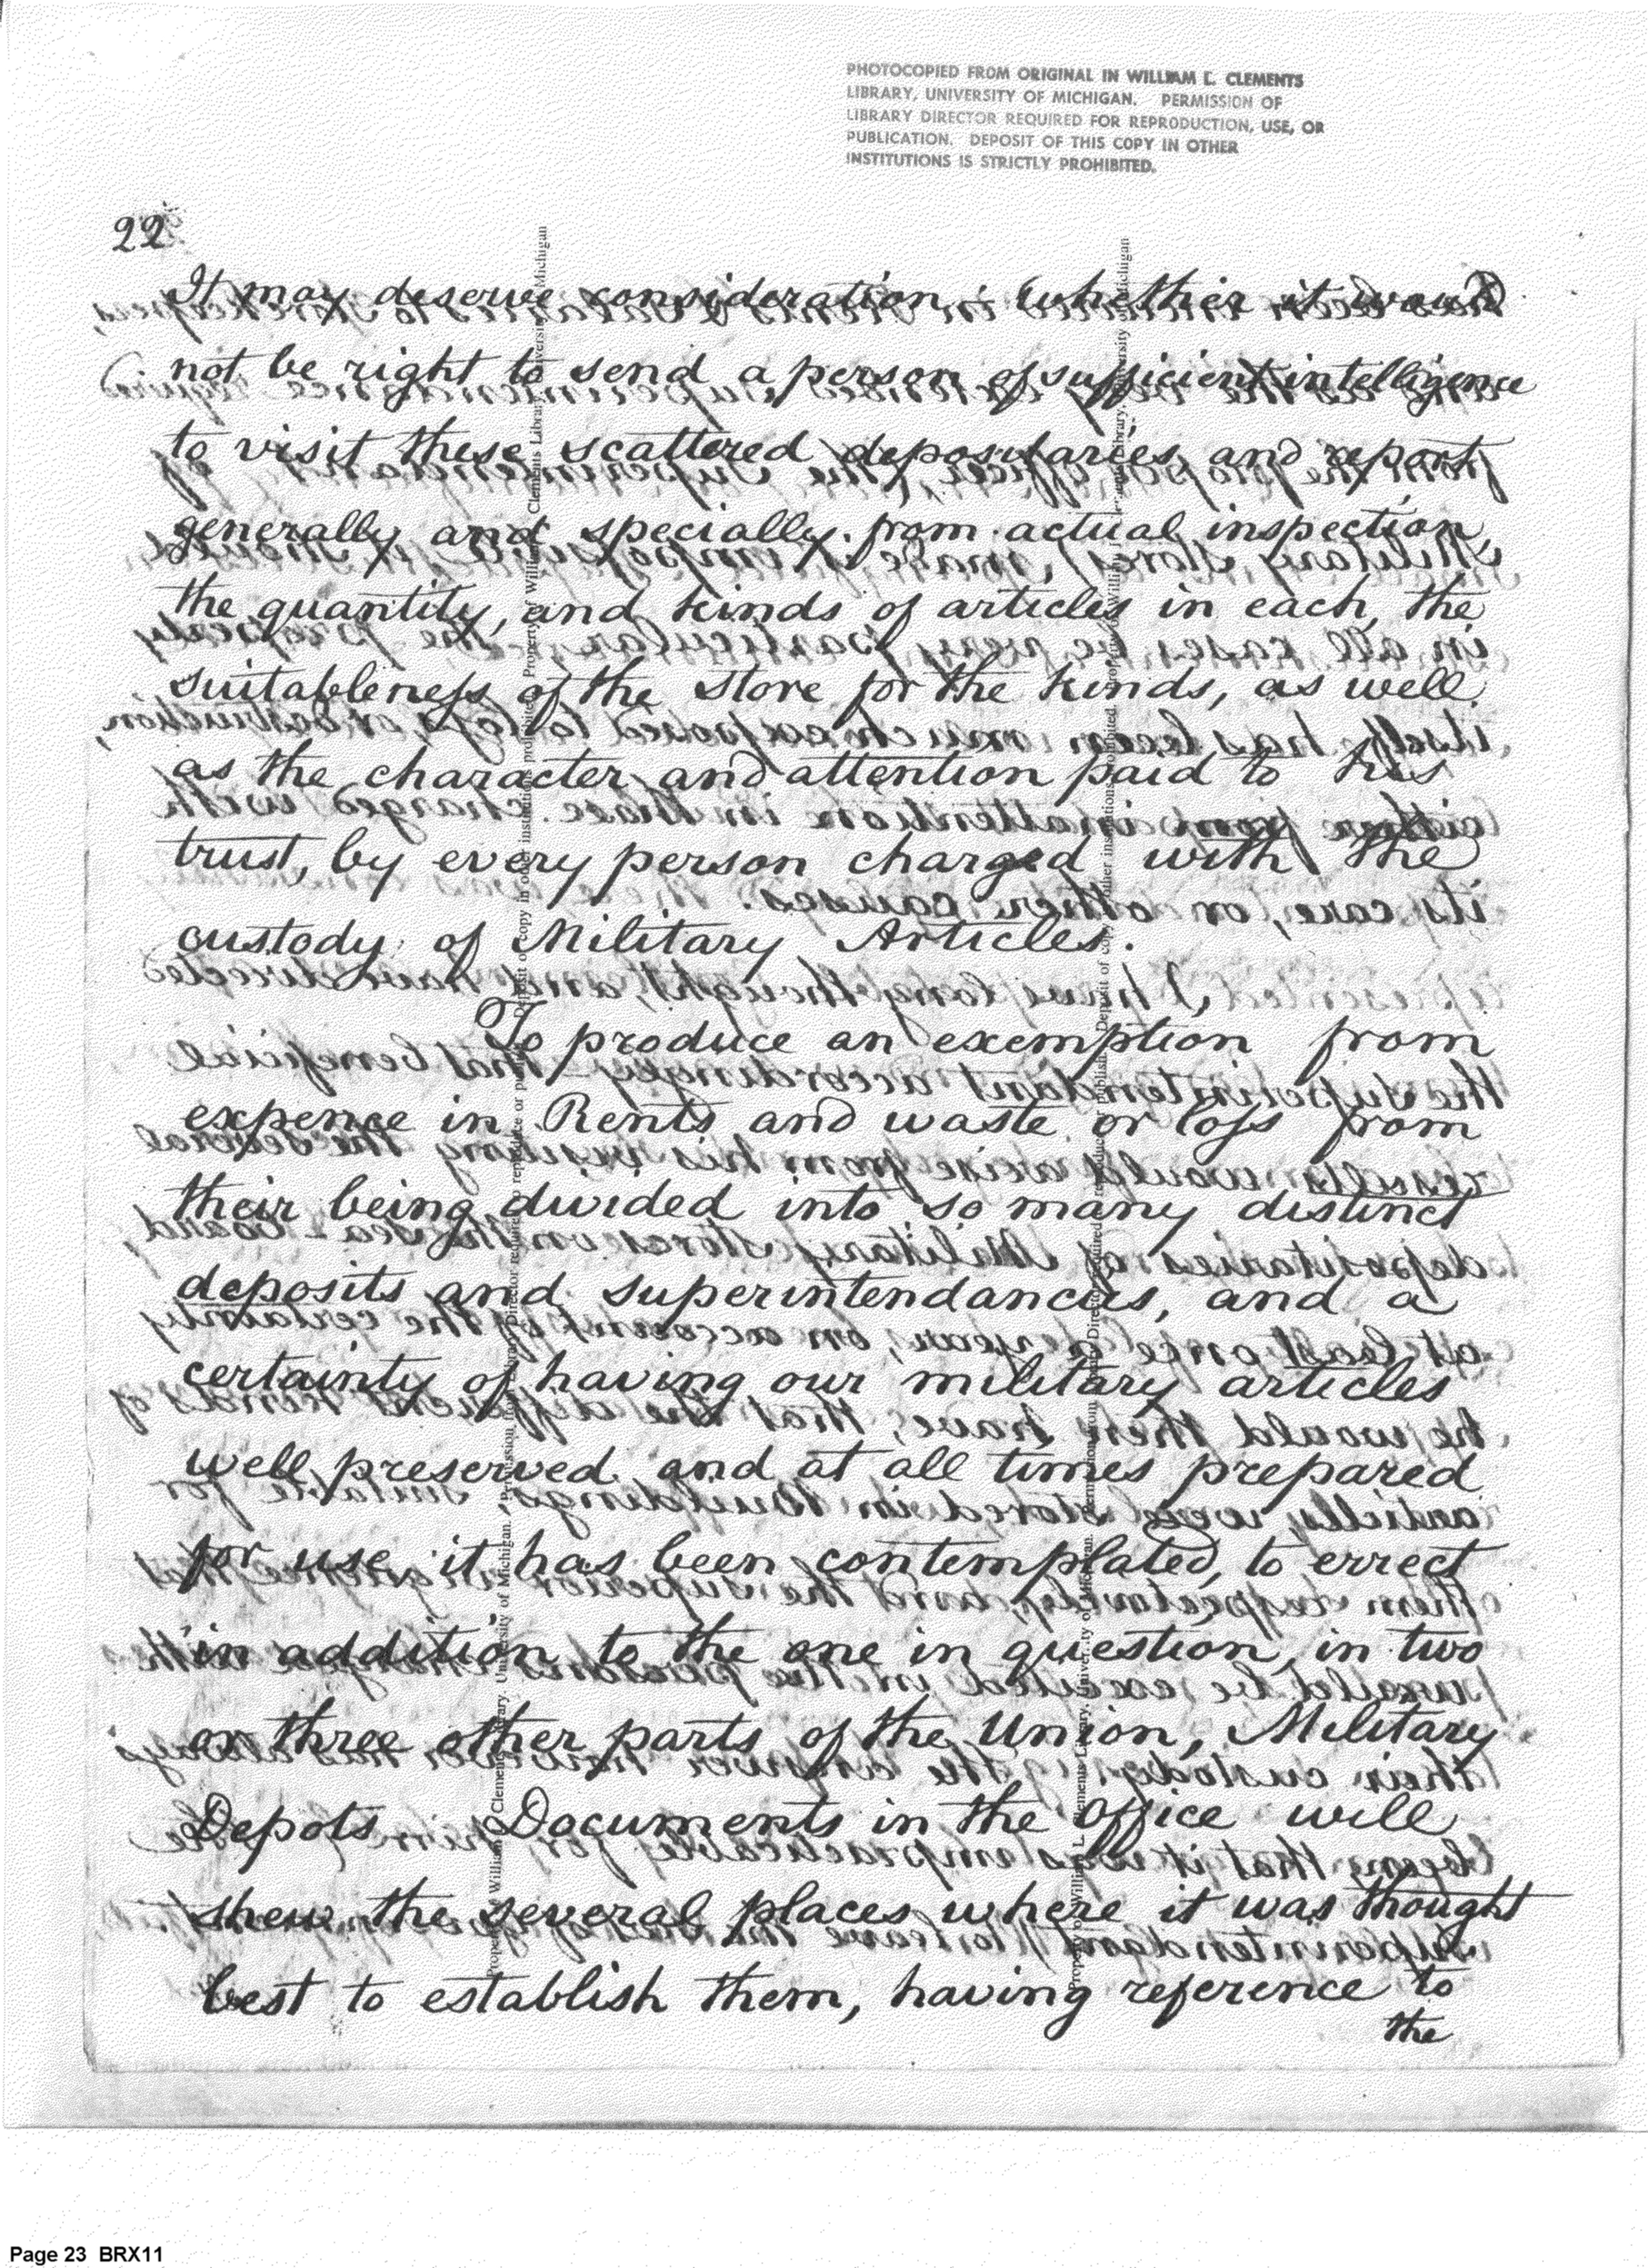 PHOTOCOPIED FROM ORIGINAL IN WILLIAM L. CLEMENTS
LIBRARY, UNIVERSITY OF MICHIGAN. PERMISSION OF
LIBRARY DIRECTOR REQUIRED FOR REPRODUCTION, USE, OR
PUBLICATION. DEPOSIT OF THIS COPY IN OTHER
INSTITUTIONS IS STRICTLY PROHIBITED.
22
It may deserve consideration whether it would
not be right to send a person of sufficient intelligence
to visit these scattered depositaries and report
generally and specially from actual inspection,
the quantity, and kinds of articles in each, the
suitableness of the store for the kinds, as well
as the character and attention paid to his
trust, by every person charged with the
custody of Military Articles.
To produce an exemption from
expence in Rents and waste or loss from
their being divided into so many distinct
deposits and superintendancies, and a
certainty of having our military articles
well preserved and at all times prepared
for use, it has been contemplated, to errect
in addition to the one in question, in two
or three other parts of the Union, Military
Depots. Documents in the Office will
shew the several places where it was thought
best to establish them, having reference to
the
Page 23 BRX11